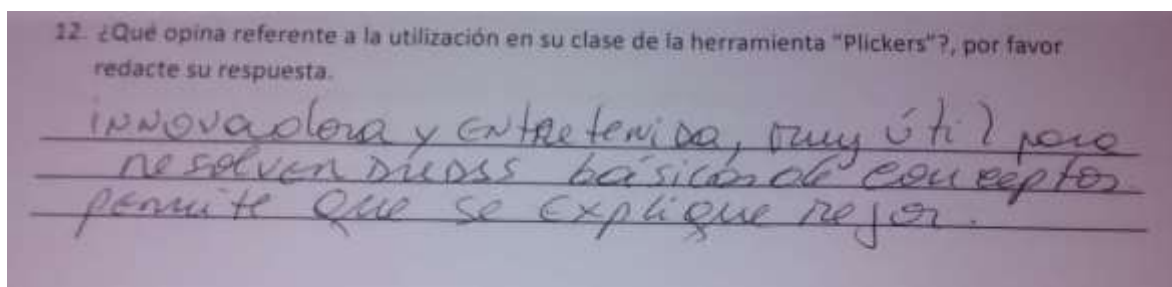 12. ¿Qué opina referente a la utilización en su clase de la herramienta "Plickers"?, por favor
redacte su respuesta.
innovadora y entretenida, muy útil para
resolver dudas básicas de conceptos
permite que se explique mejor.